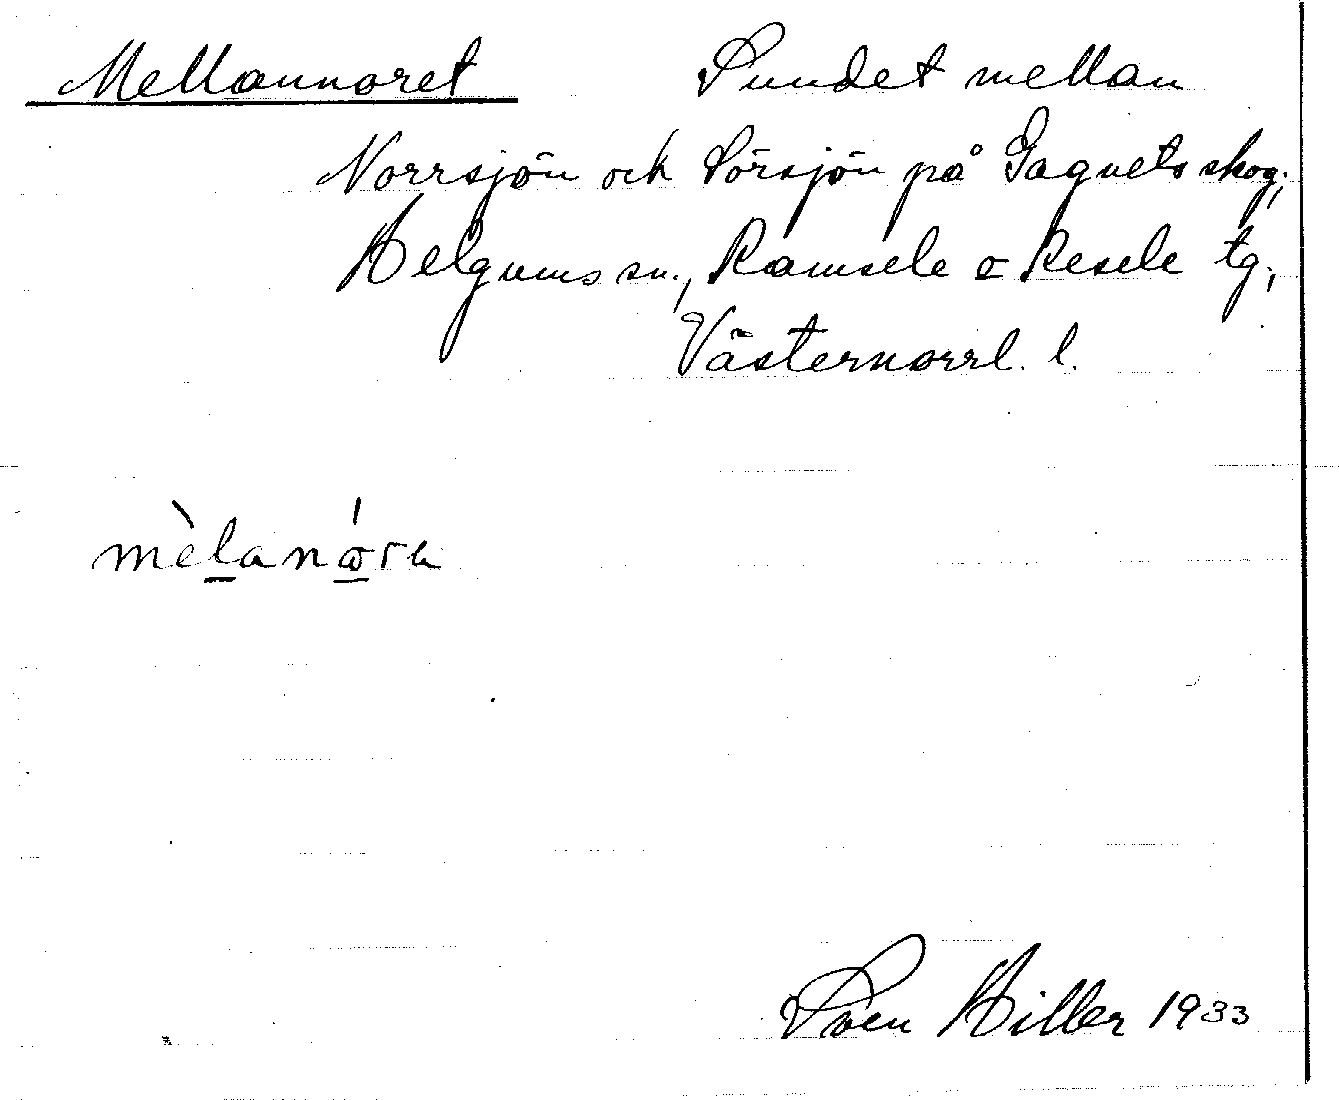 Mellannoret Sundet mellan
Norrsjön och Sörsjön på Gagnets skog,
Helgums sn., Ramsele o Resele tg,
Västernorrl. l.
mèlanóra
Sven Hiller 1933